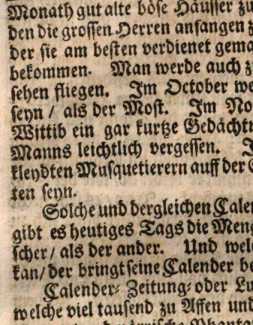 Monath gut alte böse Häuser zu
den die grossen Herren anfangen z
der sie am besten verdienet gema
bekommen. Man werde auch z
sehen fliegen. Im October we
seyn / als der Most. Im No
Wittib ein gar kurtze Gedächtn
Manns leichtlich vergessen. I
kleydten Musquetierern auff der
ten seyn.
Solche und dergleichen Calen
gibt es heutiges Tags die Meng
scher / als der ander. Und wel
kan / der bringt seine Calender be
Calender- Zeitung- oder Lu
welche viel tausend zu Affen und